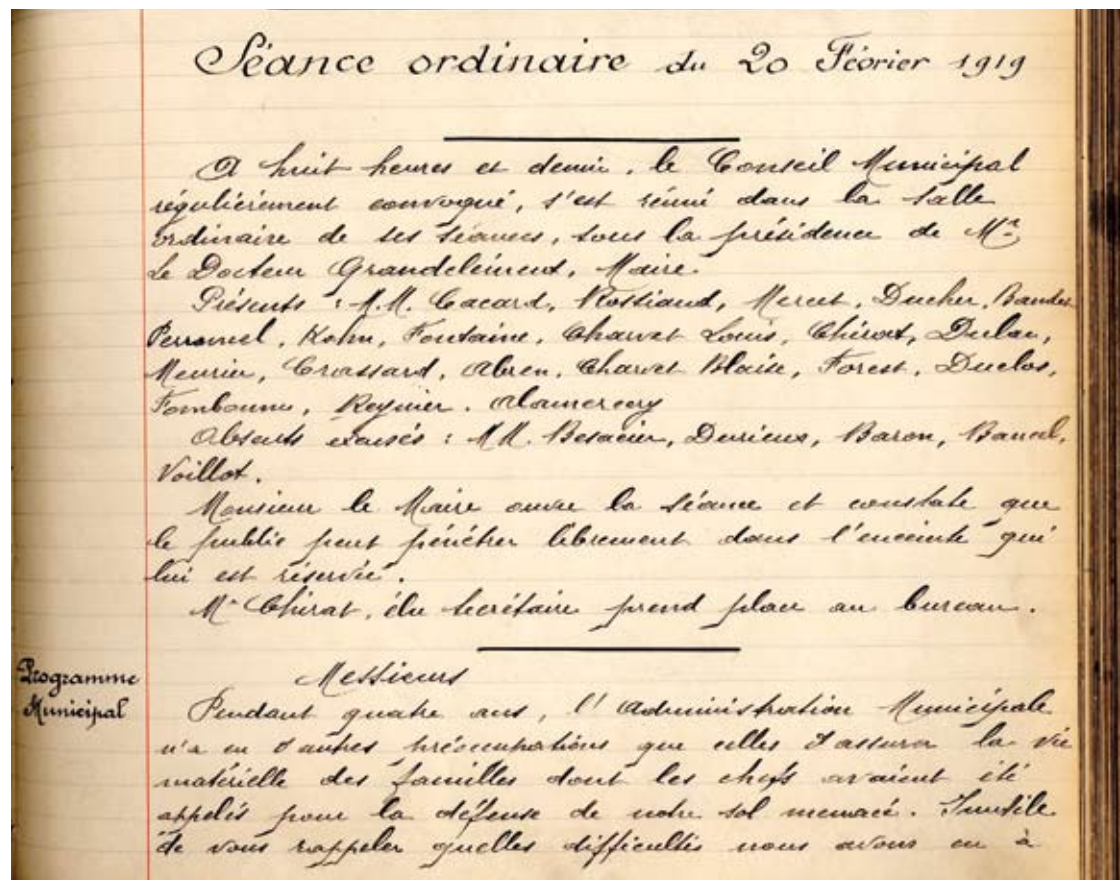 Séance ordinaire du 20 Février 1919
A huit heures et demie, le Conseil Municipal
régulièrement convoqué, s'est réuni dans la salle
ordinaire de ses séances, sous la présidence de Mr
Le Docteur Grandclément, Maire.
Présents : M.M. Cacard, Rostiaud, Mercet, Ducher, Baudet
Perronnel, Kohn, Fontaine, Charvet Louis, Chirat, Dulac,
Meunier, Crassard, Abren, Charvet Blaise, Forest, Duclos,
Fombonne, Reynier, Alamercery
Absents excusés : M.M. Besacier, Durieux, Baron, Bancel,
Voillot.
Monsieur le Maire ouvre la séance et constate que
le public peut pénétrer librement dans l'enceinte qui
lui est réservée.
Mr Chirat, élu secrétaire prend place au bureau.
Programme
Municipal
Messieurs
Pendant quatre ans, l'Administration Municipale
n'a eu d'autres préoccupations que celles d'assurer la vie
matérielle des familles dont les chefs avaient été
appelés pour la défense de notre sol menacé. Inutile
de vous rappeler quelles difficultés nous avons eu à